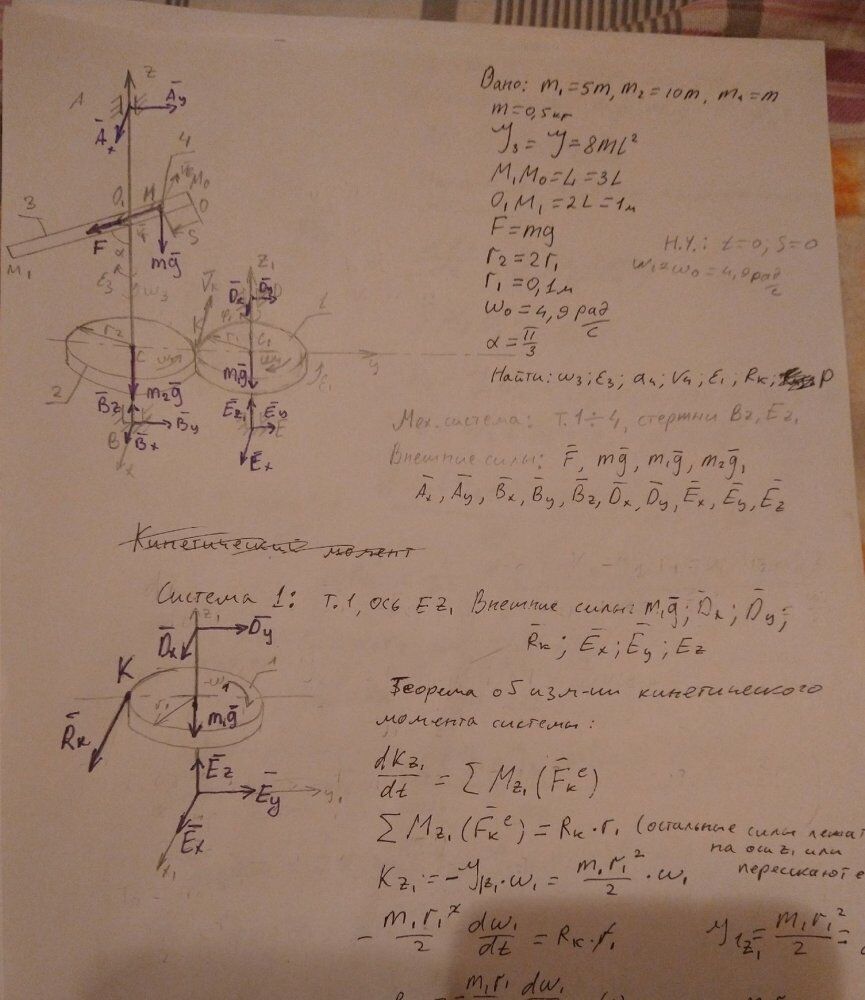 Дано: m₁=5m, m₂=10m, m₄=m
m=0,5кг
J₃=J=8mL²
M₁M₀=L=3L
O₁M₁=2L=1м
F=mg
r₂=2r₁
r₁=0,1м
ω₀=4,9 рад/с
α=π/3
Н.У.: t=0; S=0
ω₃=ω₀=4,9 рад/с
Найти: ω₃; ε₃; a₄; V₄; ε₁; Rк; P
Мех. система: т.1÷4, стержни Bz, Ez₁
Внешние силы: F̄, mḡ, m₁ḡ, m₂ḡ,
Āx, Āy, B̄x, B̄y, B̄z, D̄x, D̄y, Ēx, Ēy, Ēz
z
A
Āy
Āx
4
M₀
3
O₁
M
O
F̄
S
M₁
α
mḡ
ε₃
ω₃
z₁
V̄к
D̄x
D̄y
1
r₂
K
r₁
C
C₁
y
2
m₂ḡ
m₁ḡ
ε₁
B̄z
B̄y
B
B̄x
x
Ēz
Ēy
E
Ēx
Кинетический момент
Система 1: т.1, ось Ez₁ Внешние силы: m₁ḡ; D̄x; D̄y;
R̄к; Ēx; Ēy; Ez
z₁
D̄x
D̄y
K
1
ω₁
r₁
m₁ḡ
R̄к
Ēz
Ēy
y₁
Ēx
x₁
Теорема об изм-ии кинетического
момента системы:
dKz₁/dt = ΣMz₁(F̄кᵉ)
ΣMz₁(F̄кᵉ) = Rк·r₁ (остальные силы лежат
на оси z₁ или
пересекают е
Kz₁=-J₁z₁·ω₁= m₁r₁²/2 ·ω₁
- m₁r₁²/2 dω₁/dt = Rк·r₁
J₁z₁= m₁r₁²/2 =
m₁r₁ dω₁